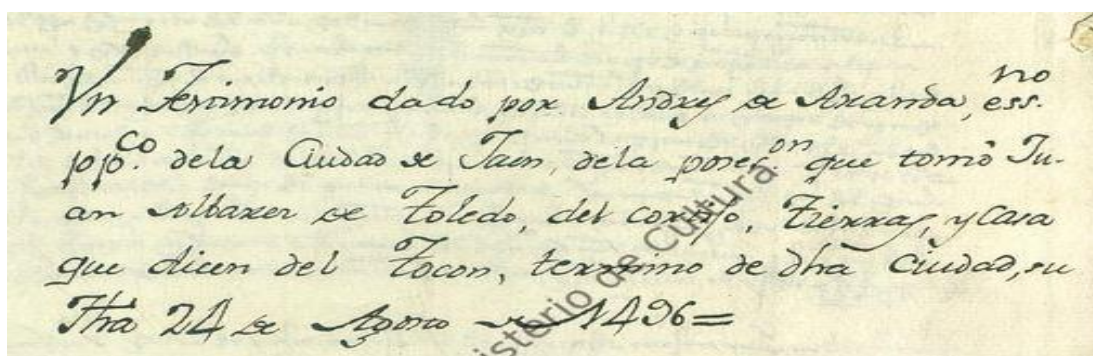 Vn Testimonio dado por Andres de Aranda, ess.no
pp.co dela Ciudad de Jaen, dela poses.on que tomò Ju-
an Albarez de Toledo, del cortijo, Tierras, y Casa
que dicen del Tocon, termino de dha Ciudad, su
Fha 24 de Agosto de 1496=
Ministerio de Cultura